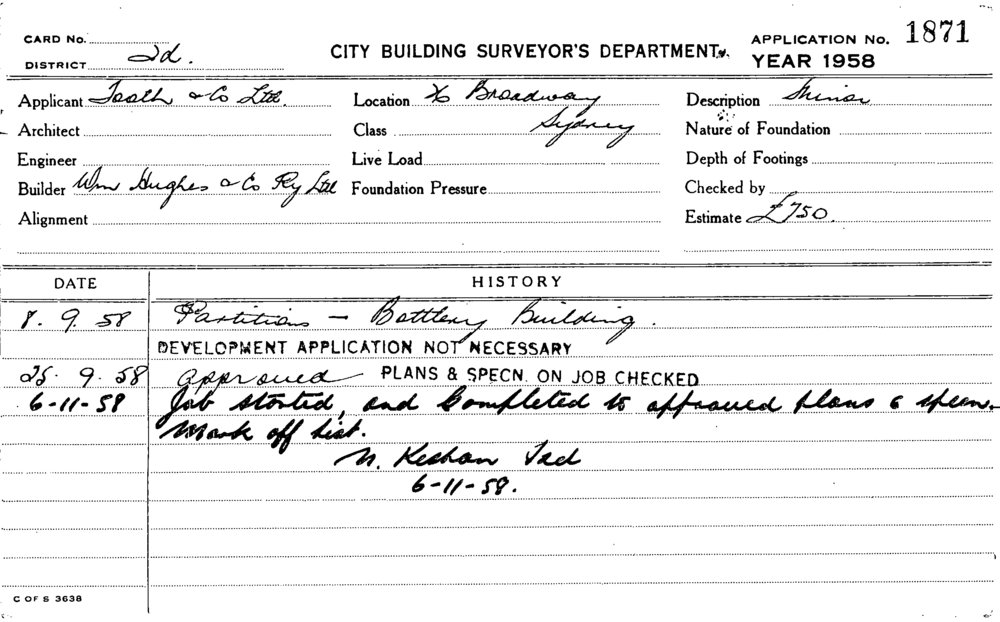 CARD No.
DISTRICT 2d.
CITY BUILDING SURVEYOR'S DEPARTMENT.
APPLICATION No. 1871
YEAR 1958
Applicant Tooth & Co Ltd.
Location Broadway
Sydney
Description Minor
Architect
Class
Nature of Foundation
Engineer
Live Load
Depth of Footings
Builder Wm Hughes & Co Pty Ltd
Foundation Pressure
Checked by
Alignment
Estimate £750.
DATE HISTORY
8. 9. 58 Partitions — Bottlery Building.
DEVELOPMENT APPLICATION NOT NECESSARY
25. 9. 58 approved PLANS & SPECN. ON JOB CHECKED
6-11-58 Job started, and Completed to approved plans & specn.
Mark off list.
6-11-58.
C OF S 3638